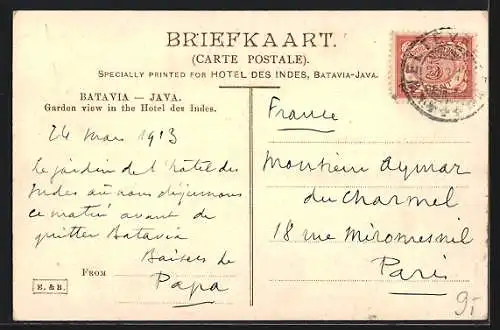 BRIEFKAART.
(CARTE POSTALE).
SPECIALLY PRINTED FOR HOTEL DES INDES, BATAVIA-JAVA.
BATAVIA — JAVA.
Garden view in the Hotel des Indes.
24 Mars 1913
Le jardin de l'hotel des
Indes où nous déjeunons
ce matin avant de
quitter Batavia
Baisers de
FROM Papa
E. & B.
France
Monsieur Aymar
du Charmel
18 rue Miromesnil
Paris
5
WELTEVREDEN
9,-